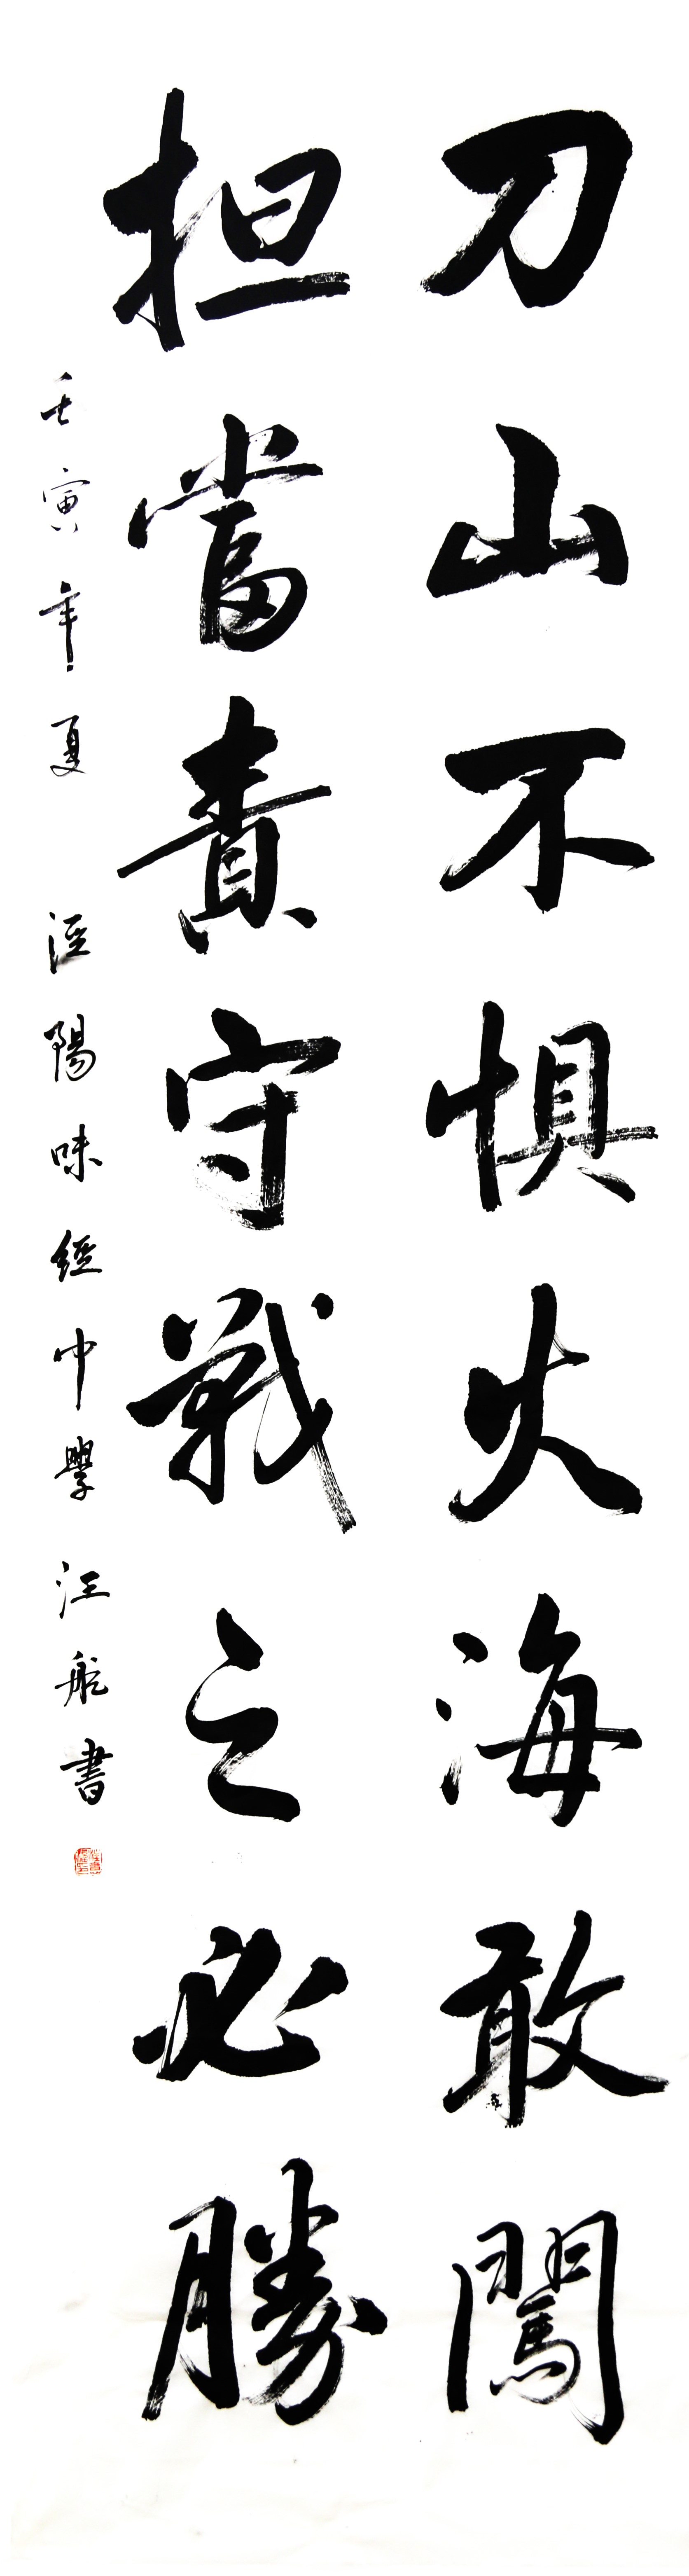 刀山不惧火海敢闖
担當責守戰之必勝
壬寅年夏 涇陽味經中學 汪航書